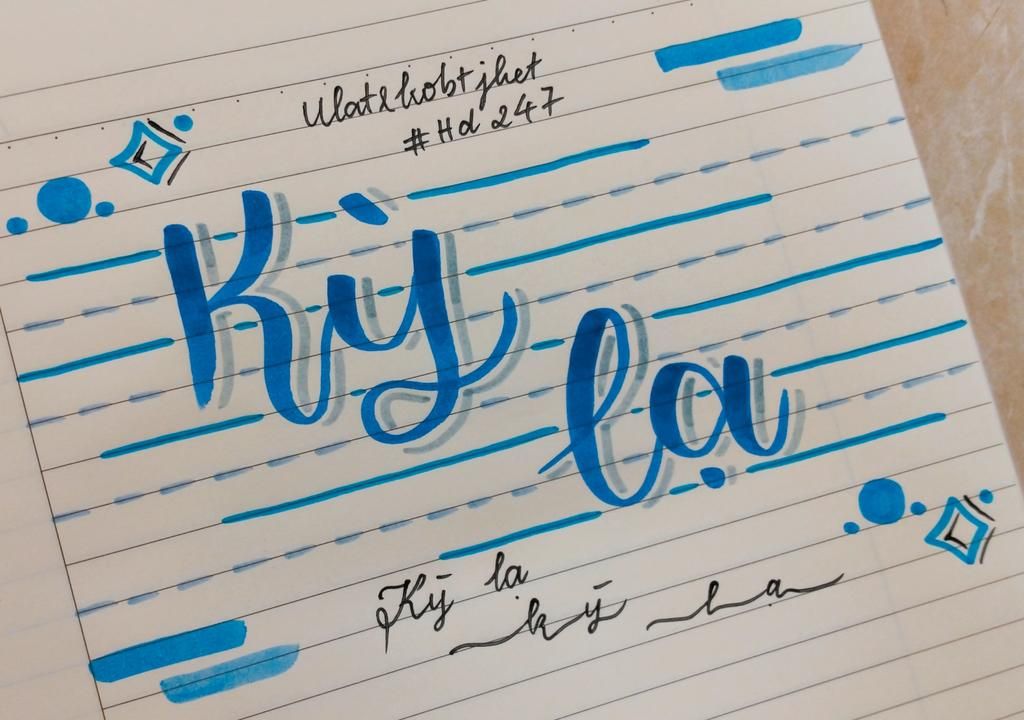 #Hd 247
Kỳ
lạ
Kỳ lạ
kỳ lạ